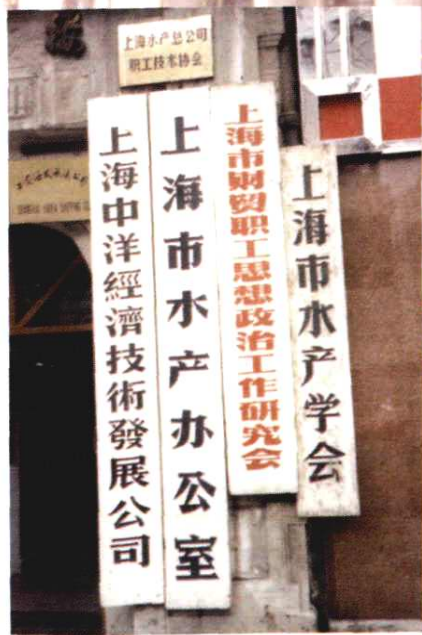 上海水产总公司
职工技术协会
上海中洋經濟技術發展公司
上海市水产办公室
上海市财贸职工思想政治工作研究会
上海市水产学会